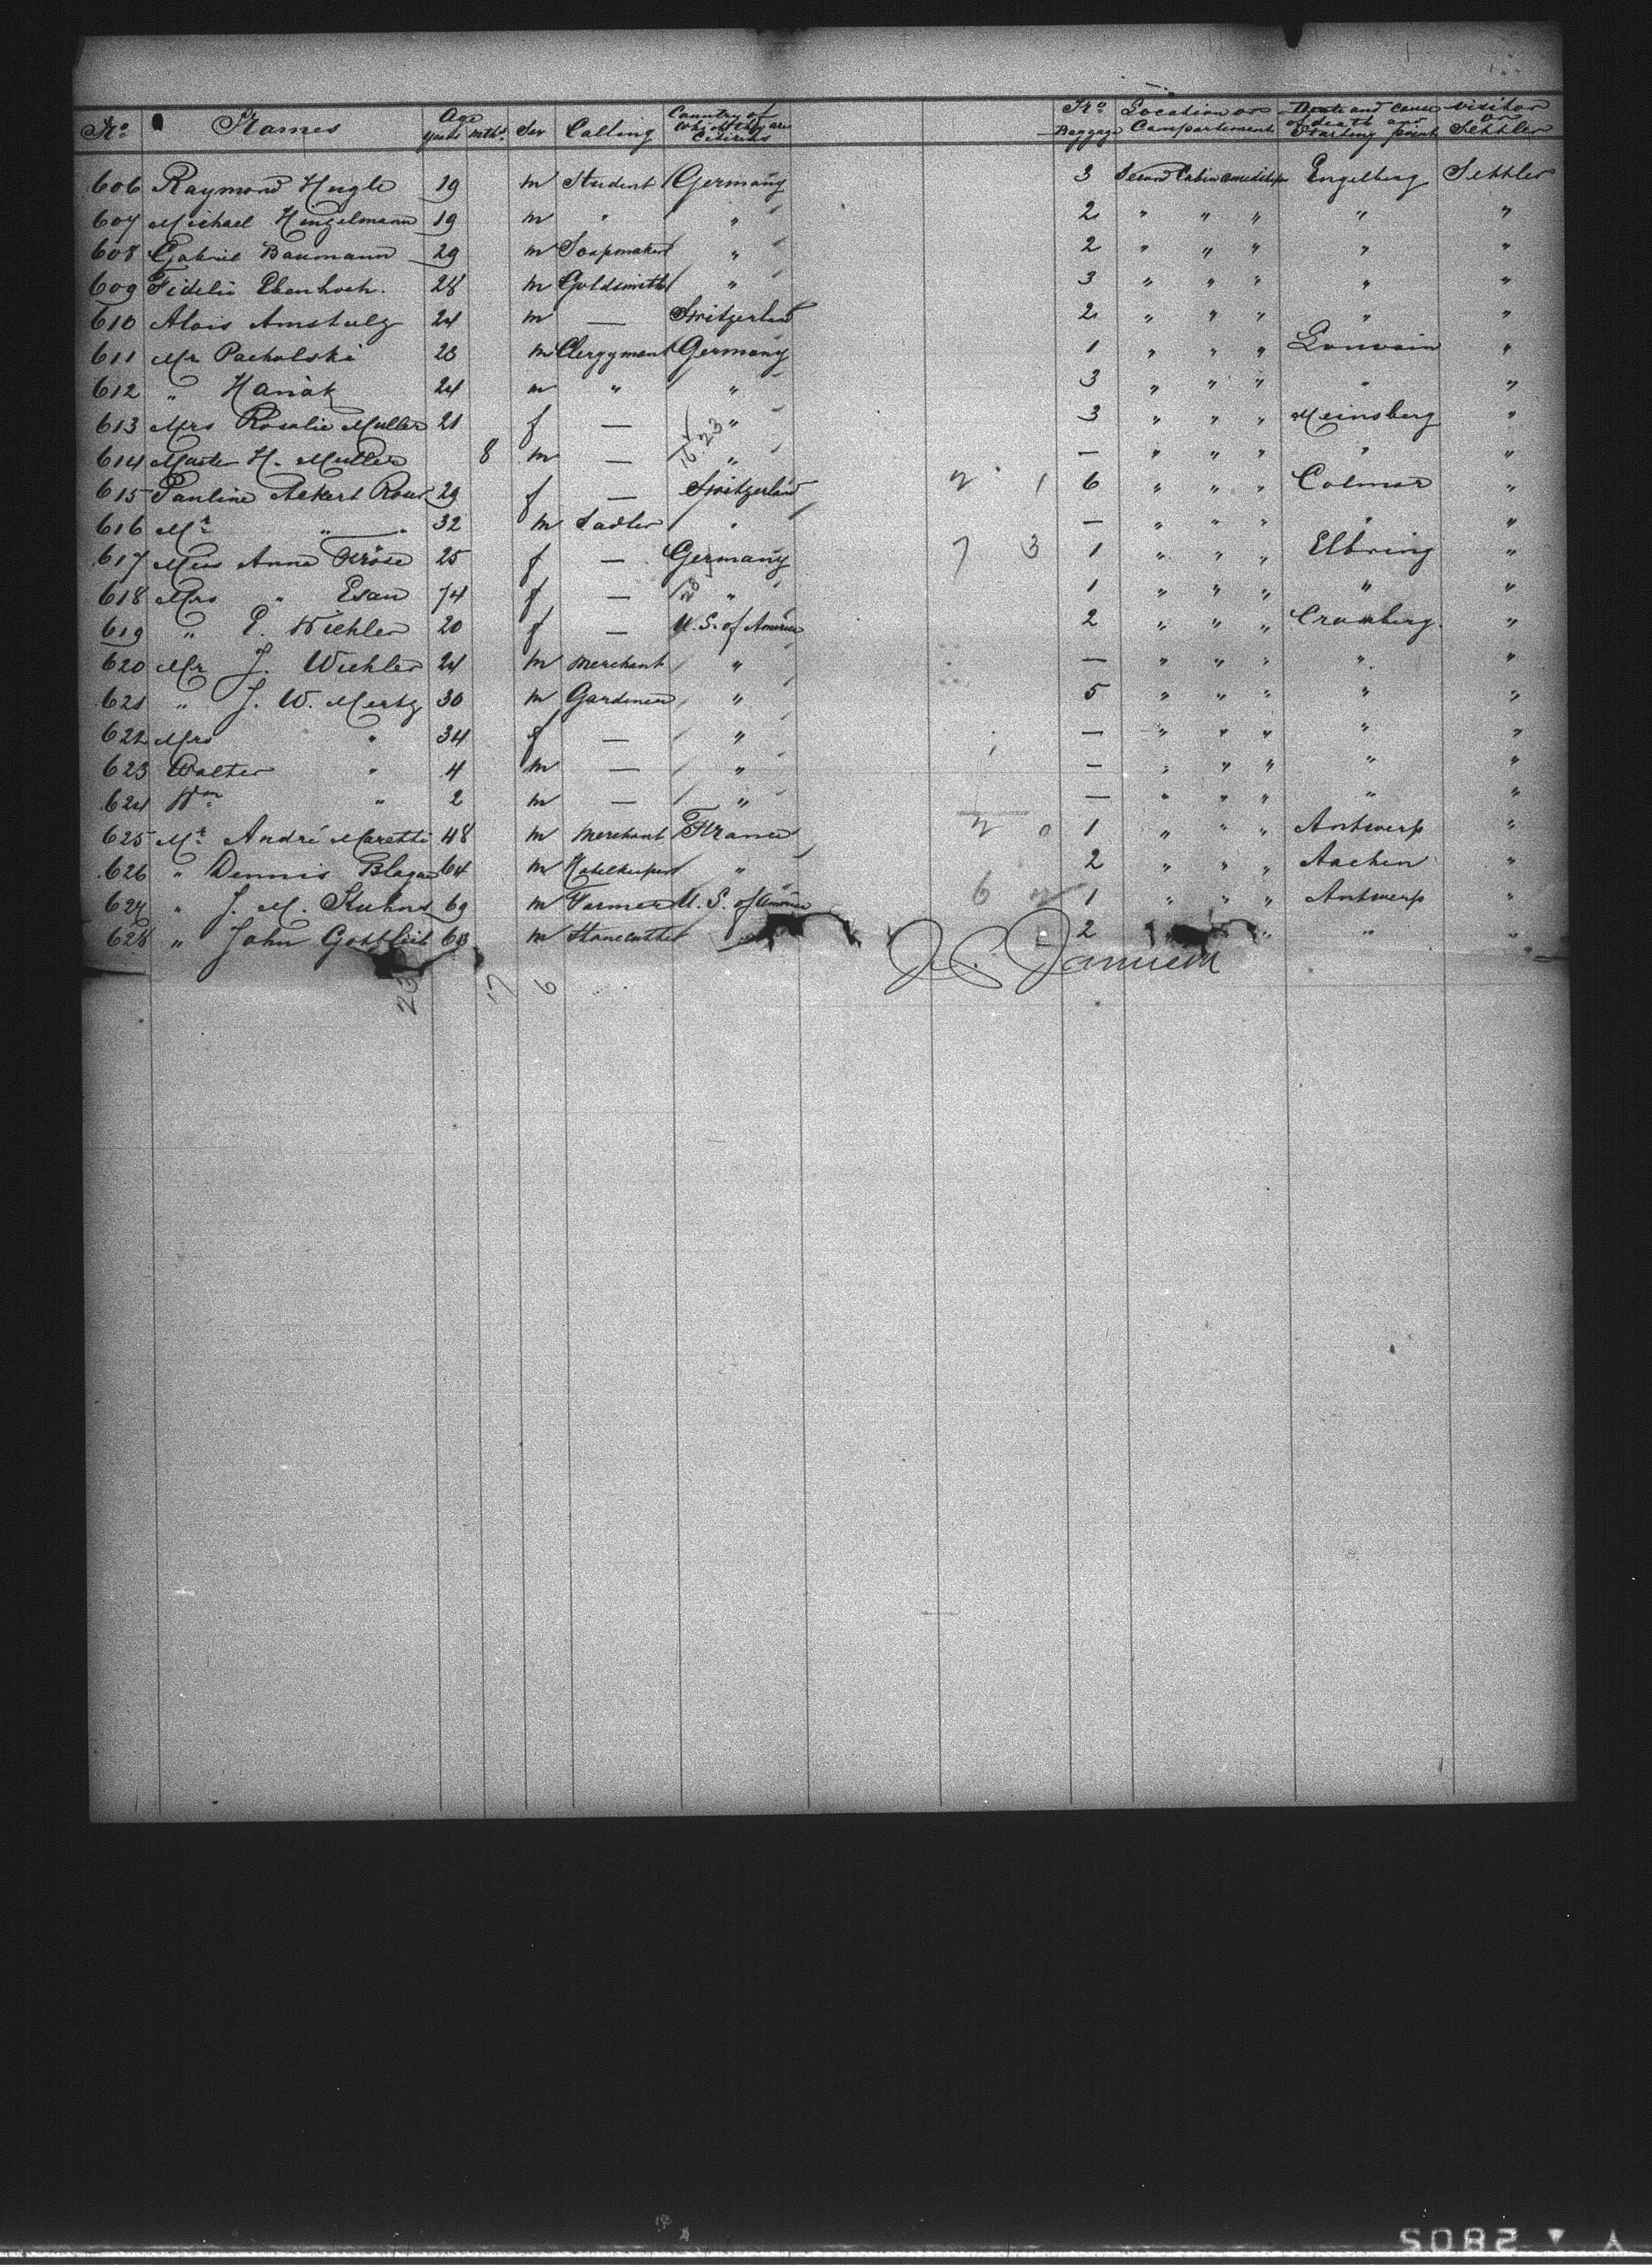 No Names Age years mths. Sex Calling Country of which they are Citizens No Baggage Location or Compartement Date and cause of death and Starting point visitor or Settler
606 Raymond Hugle 19 m Student Germany 3 Second Cabin Engelberg Settler
607 Michael Hengelmann 19 m " " 2 " " " " "
608 Gabriel Baumann 29 m Soapmaker " 2 " " " " "
609 Fidelis Ebenhoch. 28 m Goldsmith " 3 " " " " "
610 Alois Amstulz 24 m — Switzerland 2 " " " " "
611 Mr Pacholski 23 m Clergyman Germany 1 " " " Louvain "
612 " Hanak 24 m " " 3 " " " " "
613 Mrs Rosalie Muller 21 f — " 3 " " " Meinsberg "
614 Master H. Muller 8 m — " — " " " " "
615 Pauline Ackert Roux 29 f — Switzerland 2 1 6 " " " Colmar "
616 Mr " " 32 m Sadler " — " " " " "
617 Miss Anna Kröse 25 f — Germany 7 3 1 " " " Elbring "
618 Mrs " Esau 74 f — " 1 " " " " "
619 " E. Wiehler 20 f — U.S. of America 2 " " " Cronberg. "
620 Mr J. Wiehler 24 m Merchant " — " " " " "
621 " J. W. Mertz 30 m Gardener " 5 " " " " "
622 Mrs " 34 f — " — " " " " "
623 Walter " 4 m — " — " " " " "
624 Wm " 2 m — " — " " " " "
625 Mr André Maretti 48 m Merchant France 2 0 1 " " " Antwerp "
626 " Dennis 64 m Hotelkeeper " 2 " " " Aachen "
627 " J. M. Kuhns 69 m Farmer U.S. of America 6 2 1 " " " Antwerp "
628 " John Gottlieb 63 m Stonecutter 2 " " "
23 17 6